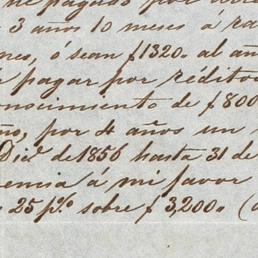 de pagado por
3 años 10 meses á ra
nes, ó sean $1320. al añ
e pagar por réditos
onocimiento de $800
ño, por 4 años un
Dicᵉ de 1856 hasta 31 de
emia á mi favor
25 p% sobre $3,200. (